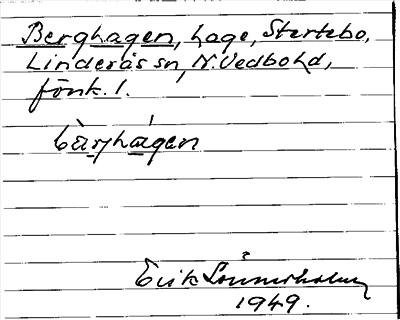 Berghagen, hage, Stertebo,
Linderås sn, N. Vedbo hd,
Jönk. l.
bàrjhágen
Erik Sönnerholm
1949.